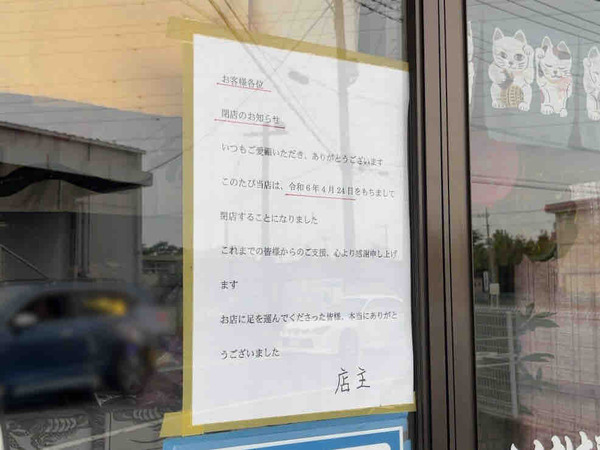 お客様各位
閉店のお知らせ
いつもご愛顧いただき、ありがとうございます
このたび当店は、令和6年4月24日をもちまして
閉店することになりました
これまでの皆様からのご支援、心より感謝申し上げ
ます
お店に足を運んでくださった皆様、本当にありがと
うございました
店主